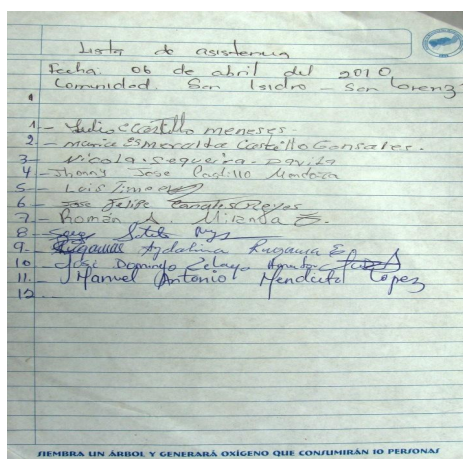 Lista de asistencia
Fecha. 06 de abril del 2010
Comunidad. San Isidro - San Lorenz
1 - Julio C Castillo meneses.
2 - maria Esmeralda Castillo Gonsales.
3 - Nicola. Sequeira. Davila
4 - Jhonny Jose Castillo Mendoza
5 - Luis
6 - Jose Felipe Canales Reyes
7 - Román A. Miranda
8 -
9. Rugamas Aydalina Rugama E
10 - José Domingo Zelaya
11. - Manuel Antonio Mendieta Lopez
12
SIEMBRA UN ÁRBOL Y GENERARÁ OXÍGENO QUE CONSUMIRÁN 10 PERSONAS